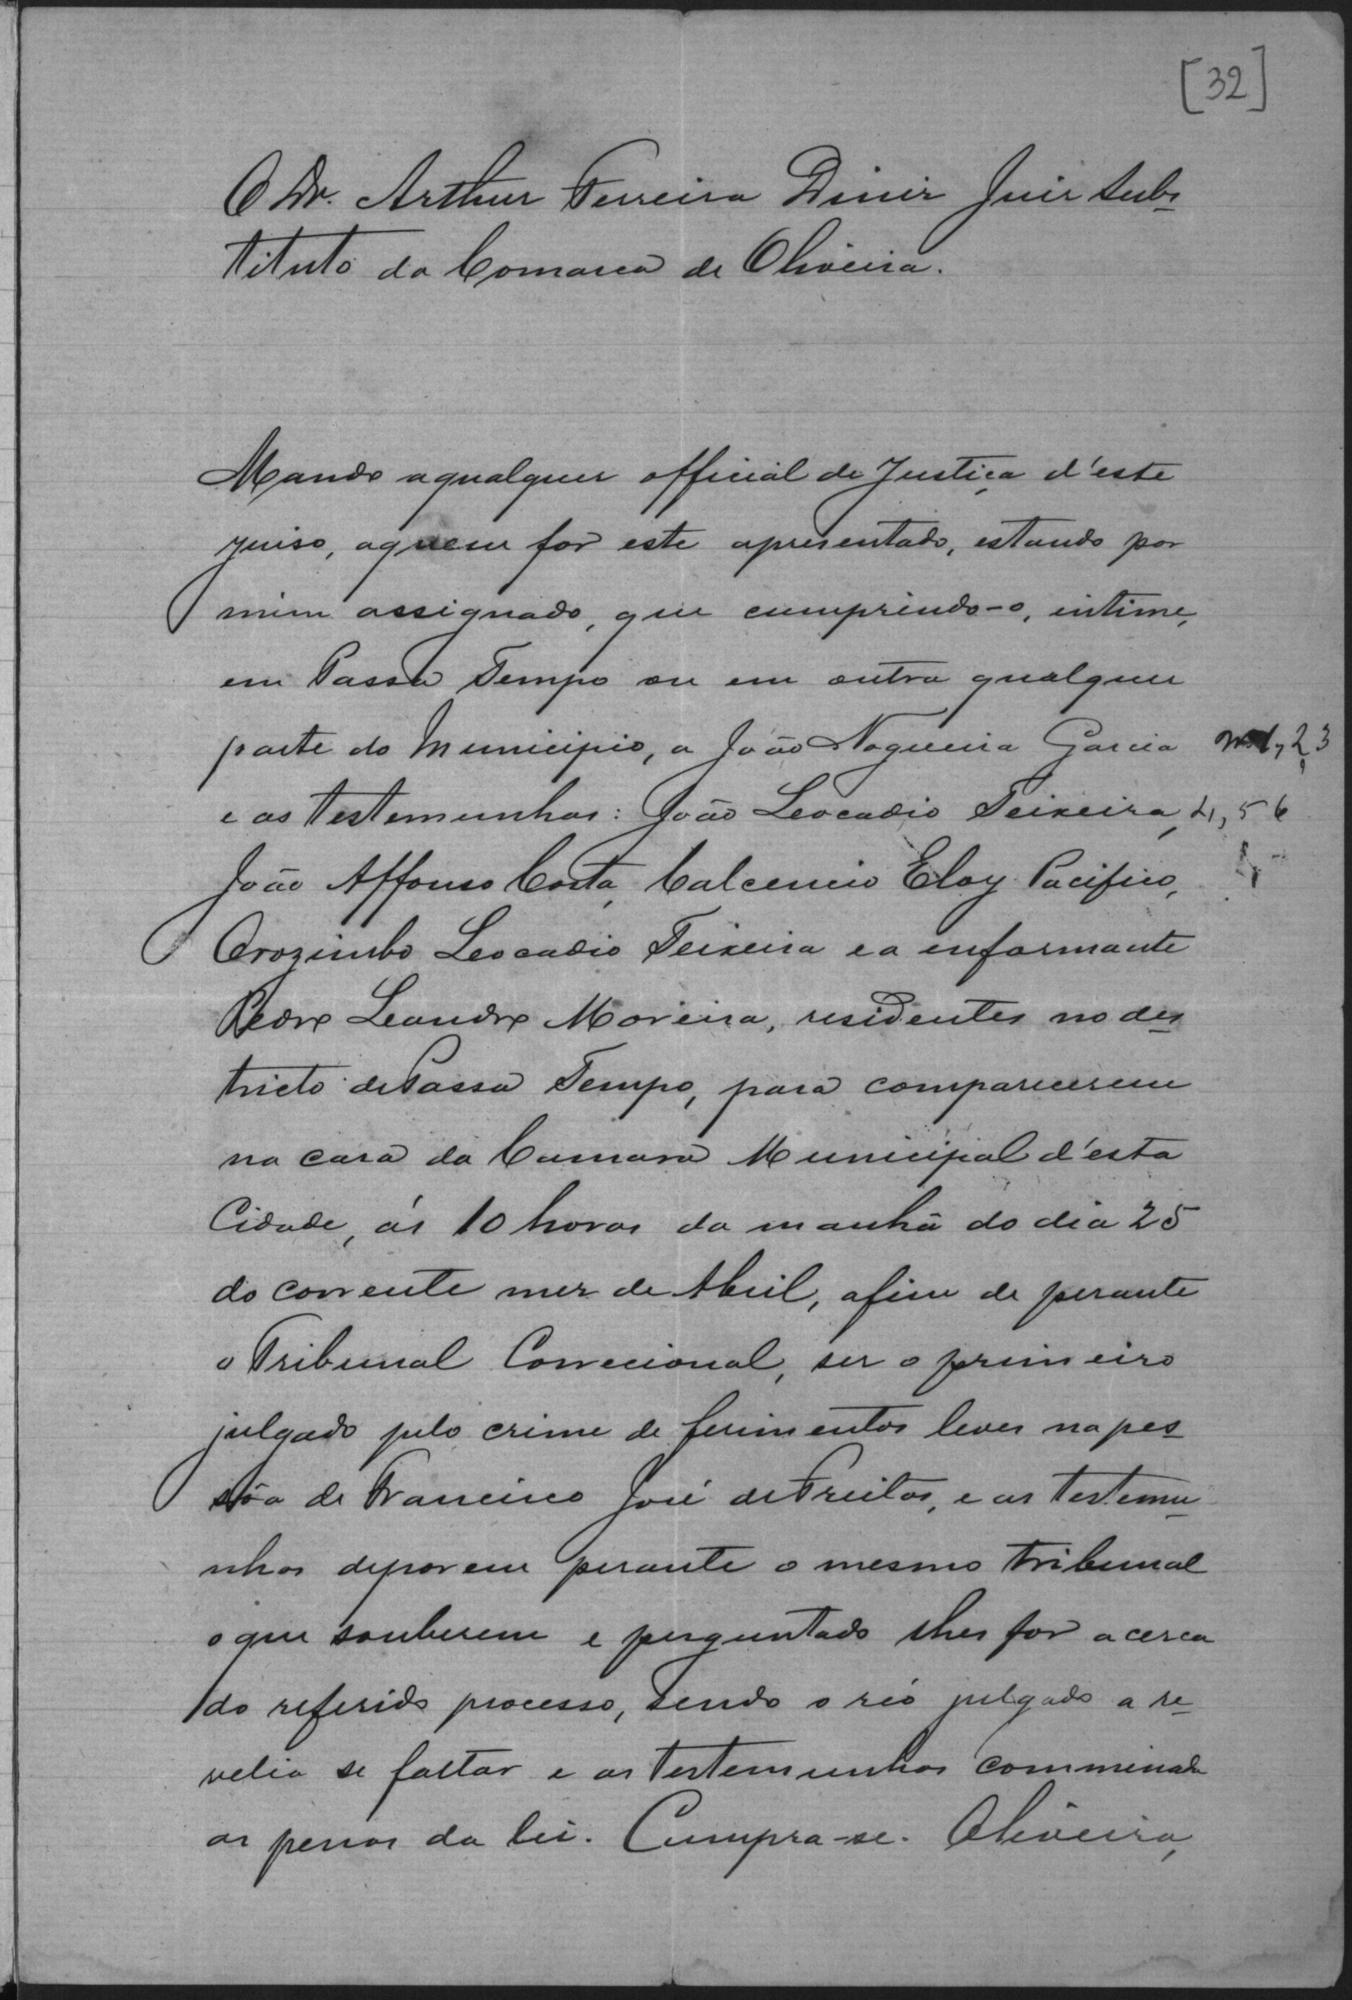 [32]
O Dr. Arthur Ferreira Diniz Juiz Subs
tituto da Comarca de Oliveira.
Mando aqualquer official de Justiça d'este
juiso, aquem for este apresentado, estando por
mim assignado, que cumprindo-o, intime,
em Passa Tempo ou em outra qualquer
parte do Municipio, a João Nogueira Garcia 1, 2, 3
e as testemunhas: João Leocadio Teixeira, 4, 5 6
João Affonso Costa, Calcencio Eloy Pacifico,
Orozimbo Leocadio Teixeira e a enformante
Pedro Leandro Moreira, residentes no des
tricto de Passa Tempo, para comparecerem
na casa da Camara Municipal d'esta
Cidade, ás 10 horas da manhã do dia 25
do corrente mez de Abril, afim de perante
o Tribunal Correcional, ser o primeiro
julgado pelo crime de ferimentos leves na pes
sôa de Francisco José de Freitas, e as testemu-
nhas deporem perante o mesmo tribunal
o que souberem e perguntado lhes for acerca
do referido processo, sendo o réo julgado a re-
velia se faltar e as testemunhas comminada
as penas da lei. Cumpra-se. Oliveira,